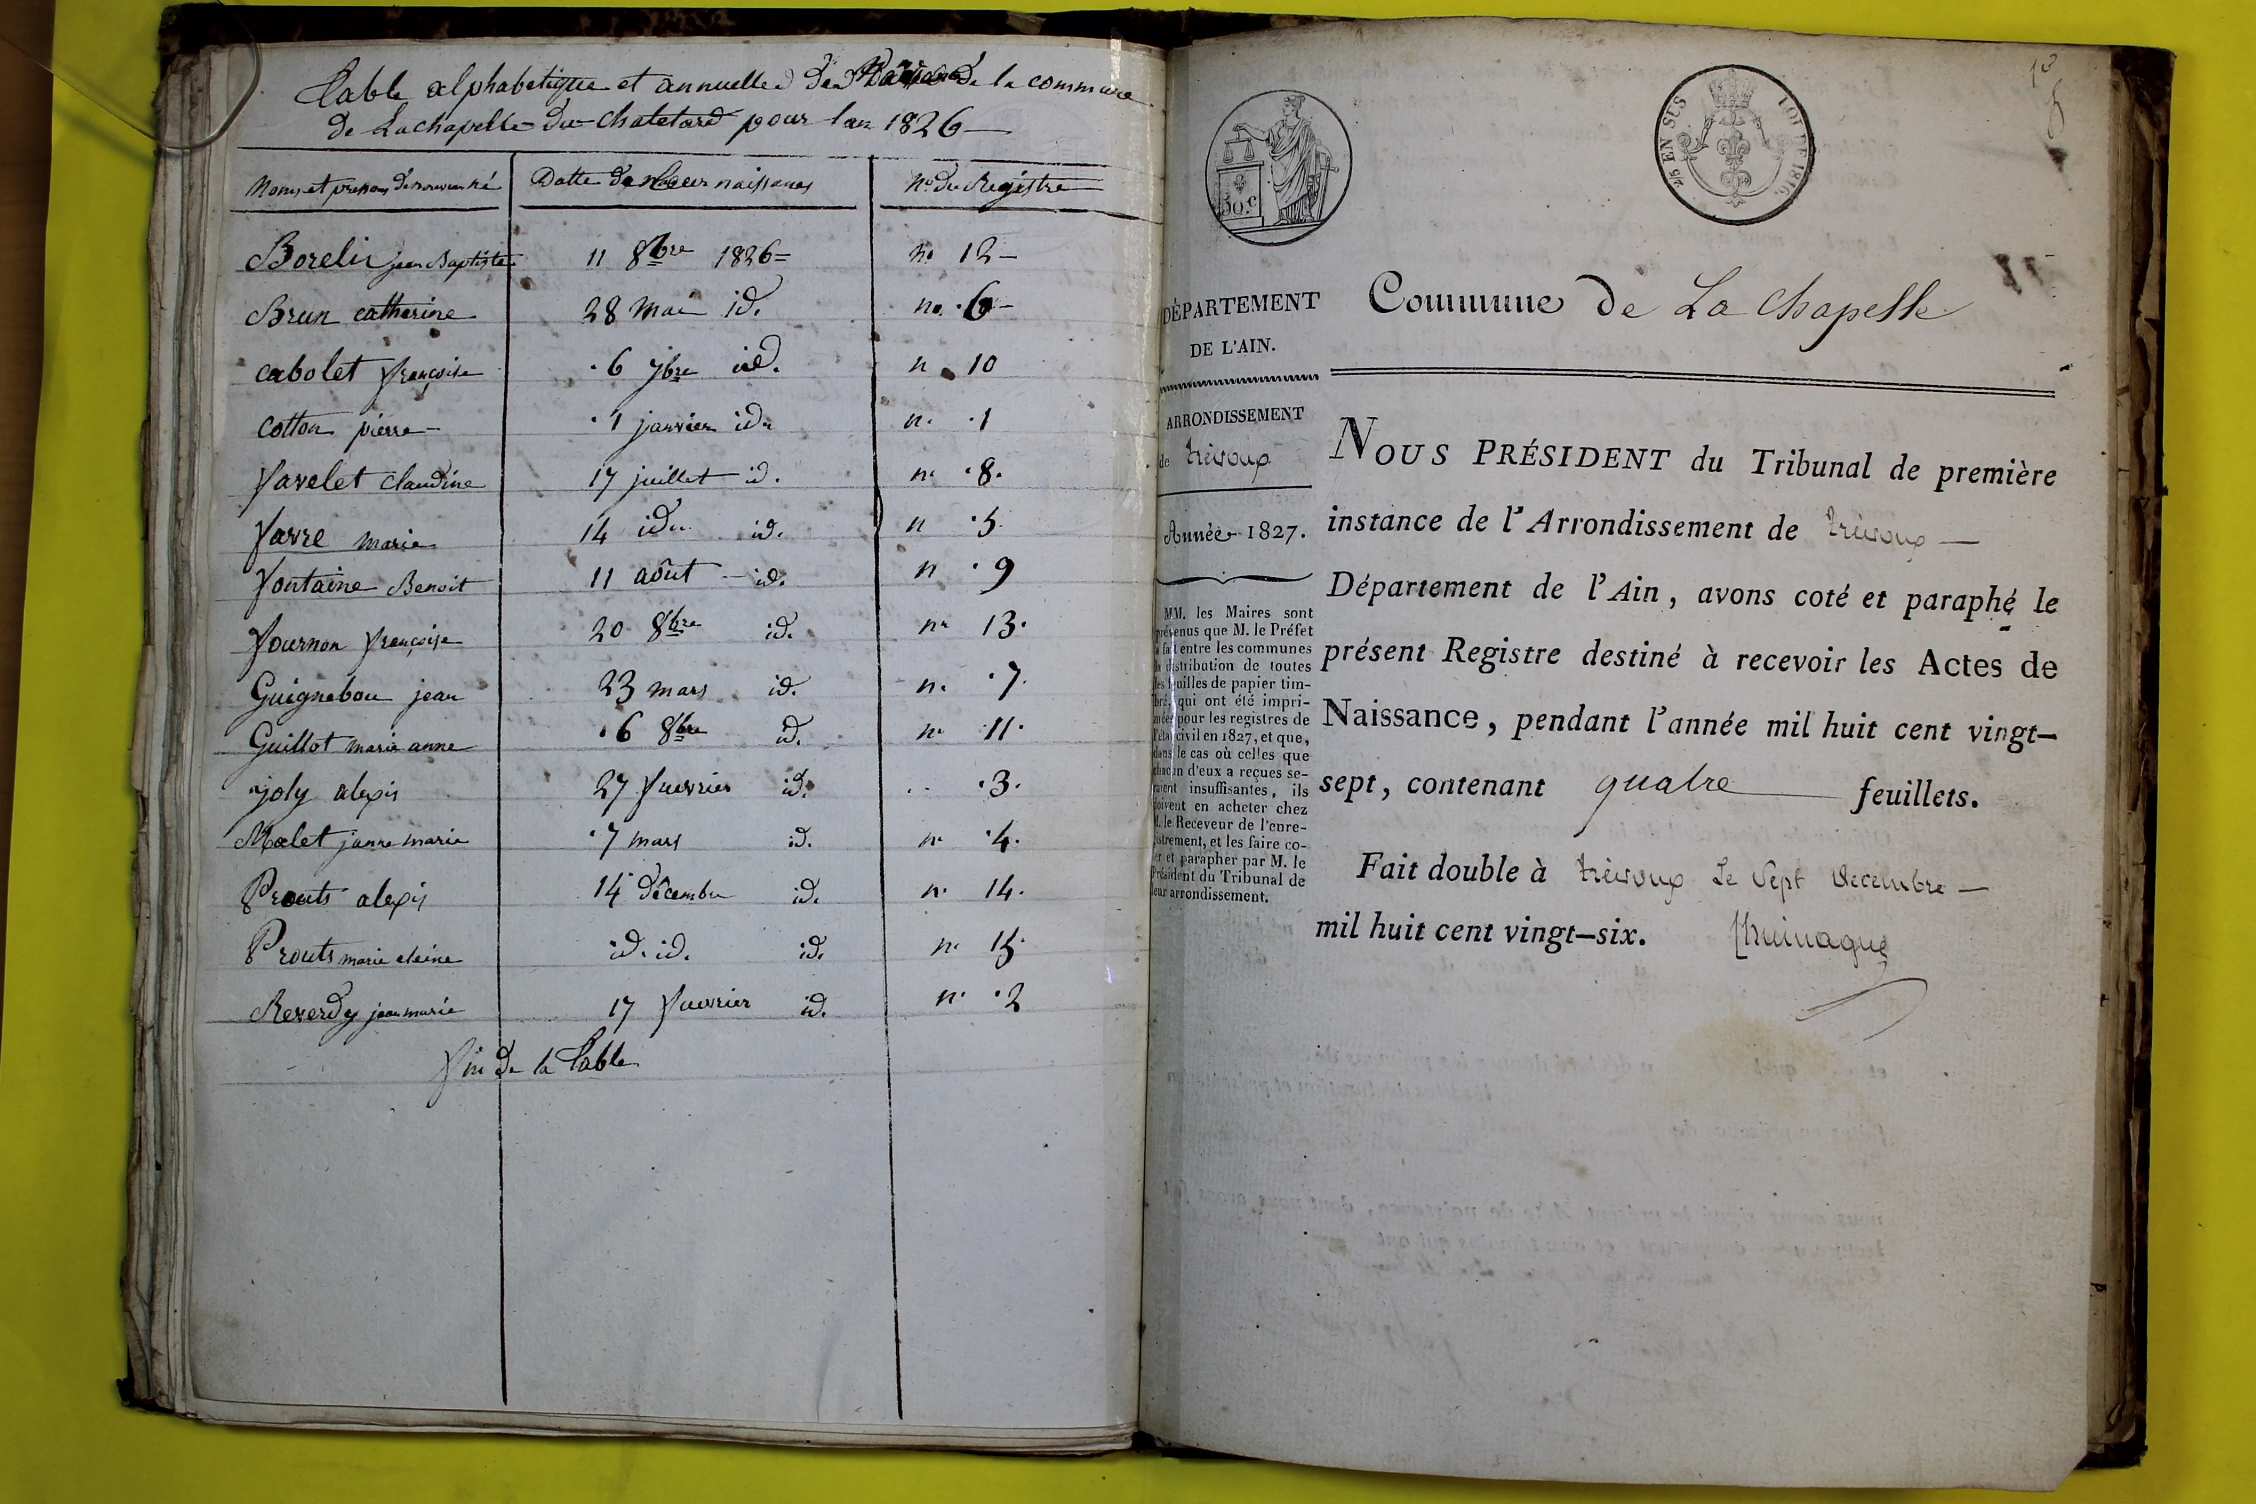 Table alphabetique et annuelle des de la commune
de Lachapelle du chatelard pour lan 1826
Noms et prenoms de nouveau né Datte de Leur naissances No du Registre
Borelir jean Baptiste 11 8bre 1826 = no 12 -
Brun catherine 28 mai id. no. 6 -
cabolet françoise 6 7bre id. n 10
Cotton pierre - 1 janvier id. n. 1
favelet claudine 17 juillet id. n. 8.
favre marie 14 id. id. n 5
fontaine Benoit 11 août - id. n 9
fournon françoise 20 8bre id. n. 13.
Guignebou jean 23 mars id. n. 7.
Guillot marie anne 6 8bre id. n. 11.
joly alexis 27 fuevrier id. .. 3.
Malet janne marie 7 mars id. n. 4.
Prouts alexis 14 décembre id. n. 14.
Prouts marie claine id. id. id. n. 15
Reverdy jean marie 17 fuevrier id. n. 2
fin de la Table
30.c
2/5 EN SUS
LOI DE 1816.
Commune de La Chapelle
DÉPARTEMENT
DE L'AIN.
ARRONDISSEMENT
de trévoux
Année 1827.
MM. les Maires sont
prévenus que M. le Préfet
a fait entre les communes
la distribution de toutes
les feuilles de papier tim-
bré, qui ont été impri-
mées pour les registres de
l'état civil en 1827, et que,
dans le cas où celles que
chacun d'eux a reçues se-
raient insuffisantes, ils
doivent en acheter chez
M. le Receveur de l'enre-
gistrement, et les faire co-
ter et parapher par M. le
Président du Tribunal de
leur arrondissement.
NOUS PRÉSIDENT du Tribunal de première
instance de l'Arrondissement de trévoux —
Département de l'Ain, avons coté et paraphé le
présent Registre destiné à recevoir les Actes de
Naissance, pendant l'année mil huit cent vingt-
sept, contenant quatre feuillets.
Fait double à trévoux Le Sept decembre —
mil huit cent vingt-six.